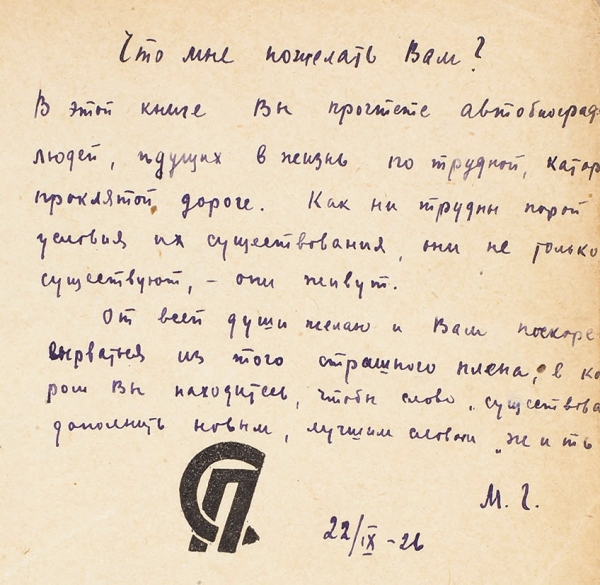 Что мне пожелать Вам?
В этой книге Вы прочтете автобиограф
людей, идущих в жизнь по трудной, катор
проклятой дороге. Как ни трудны порой
условия их существования, они не только
существуют, – они живут.
От всей души желаю и Вам поскоре
вырваться из того страшного плена, в ко
ром Вы находитесь, чтобы слово „существова
дополнить новым, лучшим словом „жить
М. Г.
22/IX –26